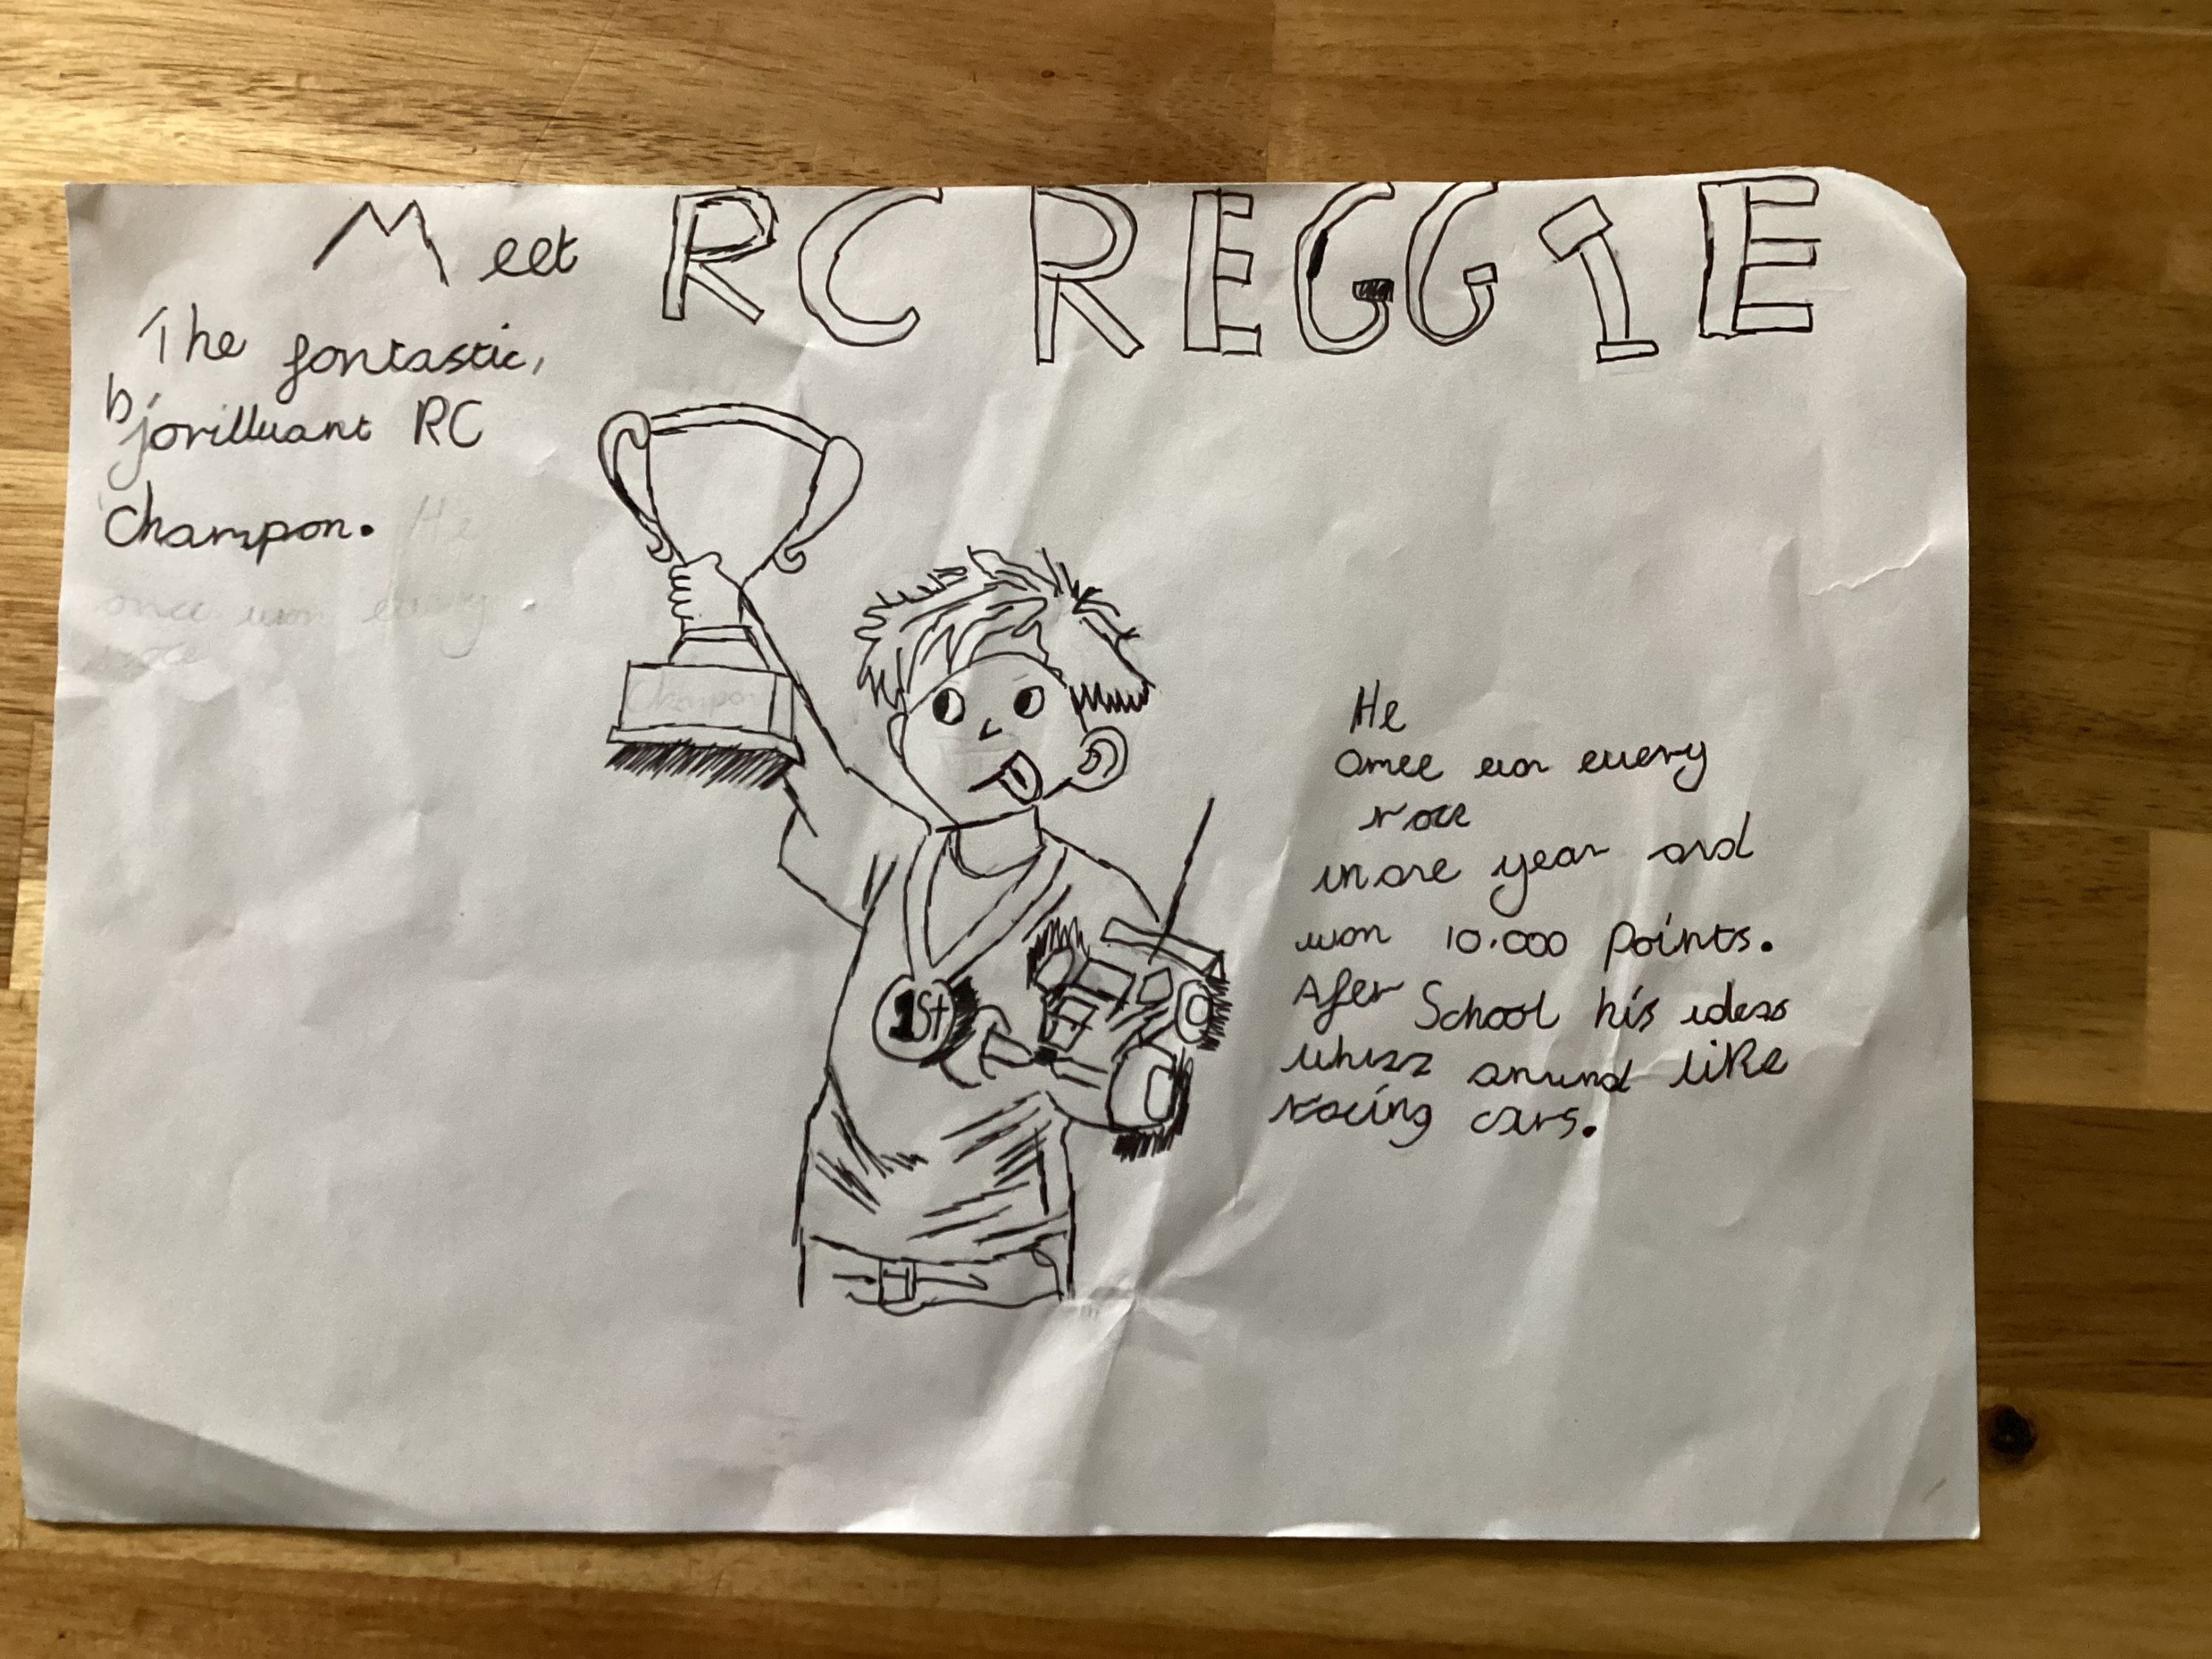 Meet RC REGGIE
The fantastic,
brilliuant RC
Champon. He
once won every
race
Champon
1st
He
once won every
race
in one year and
won 10.000 points.
Afer School his ideas
whizz arund like
racing cars.